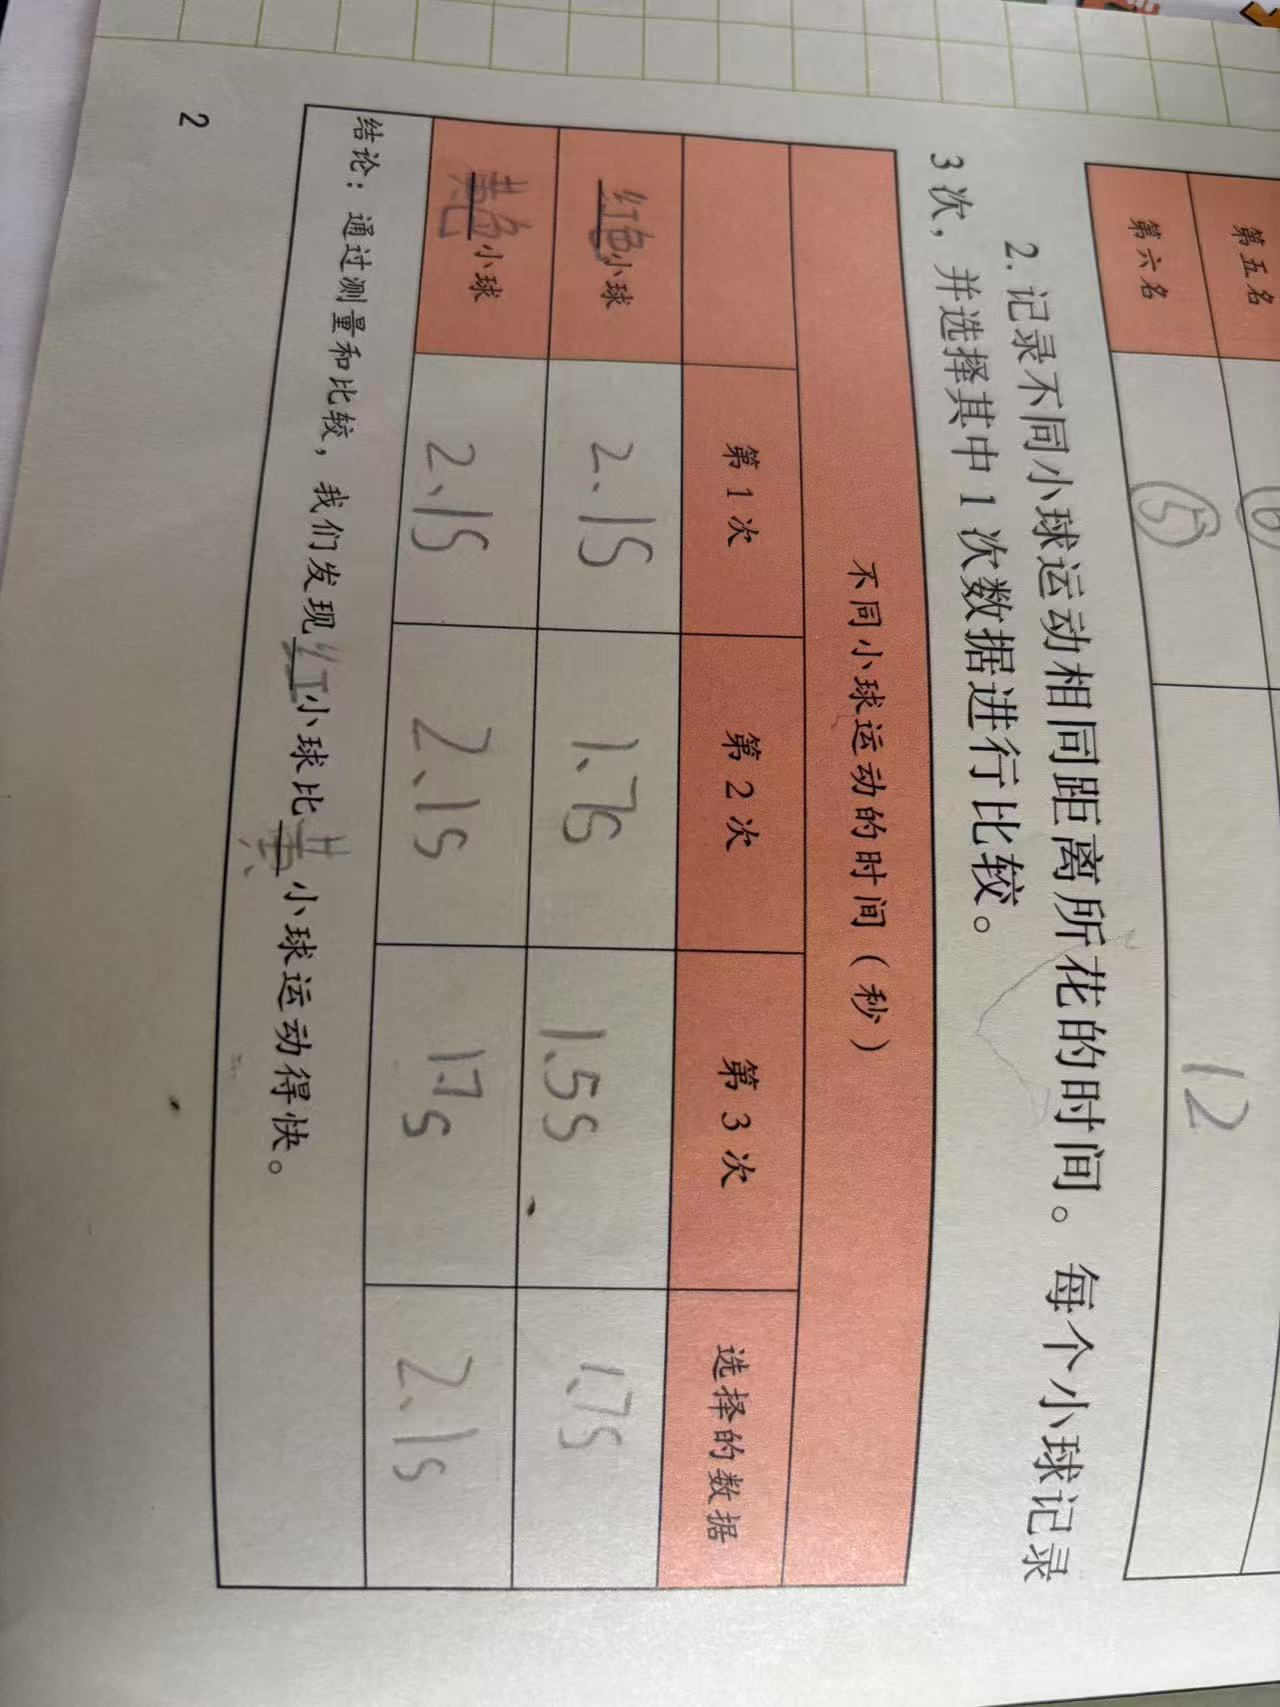 第五名 6
第六名 5 12
2.记录不同小球运动相同距离所花的时间。每个小球记录
3次，并选择其中1次数据进行比较。
不同小球运动的时间（秒）
第1次 第2次 第3次 选择的数据
红色小球 2.1S 1.7s 1.5s 1.7s
黄色小球 2.1S 2.1s 1.7s 2.1s
结论：通过测量和比较，我们发现红小球比黄小球运动得快。
2